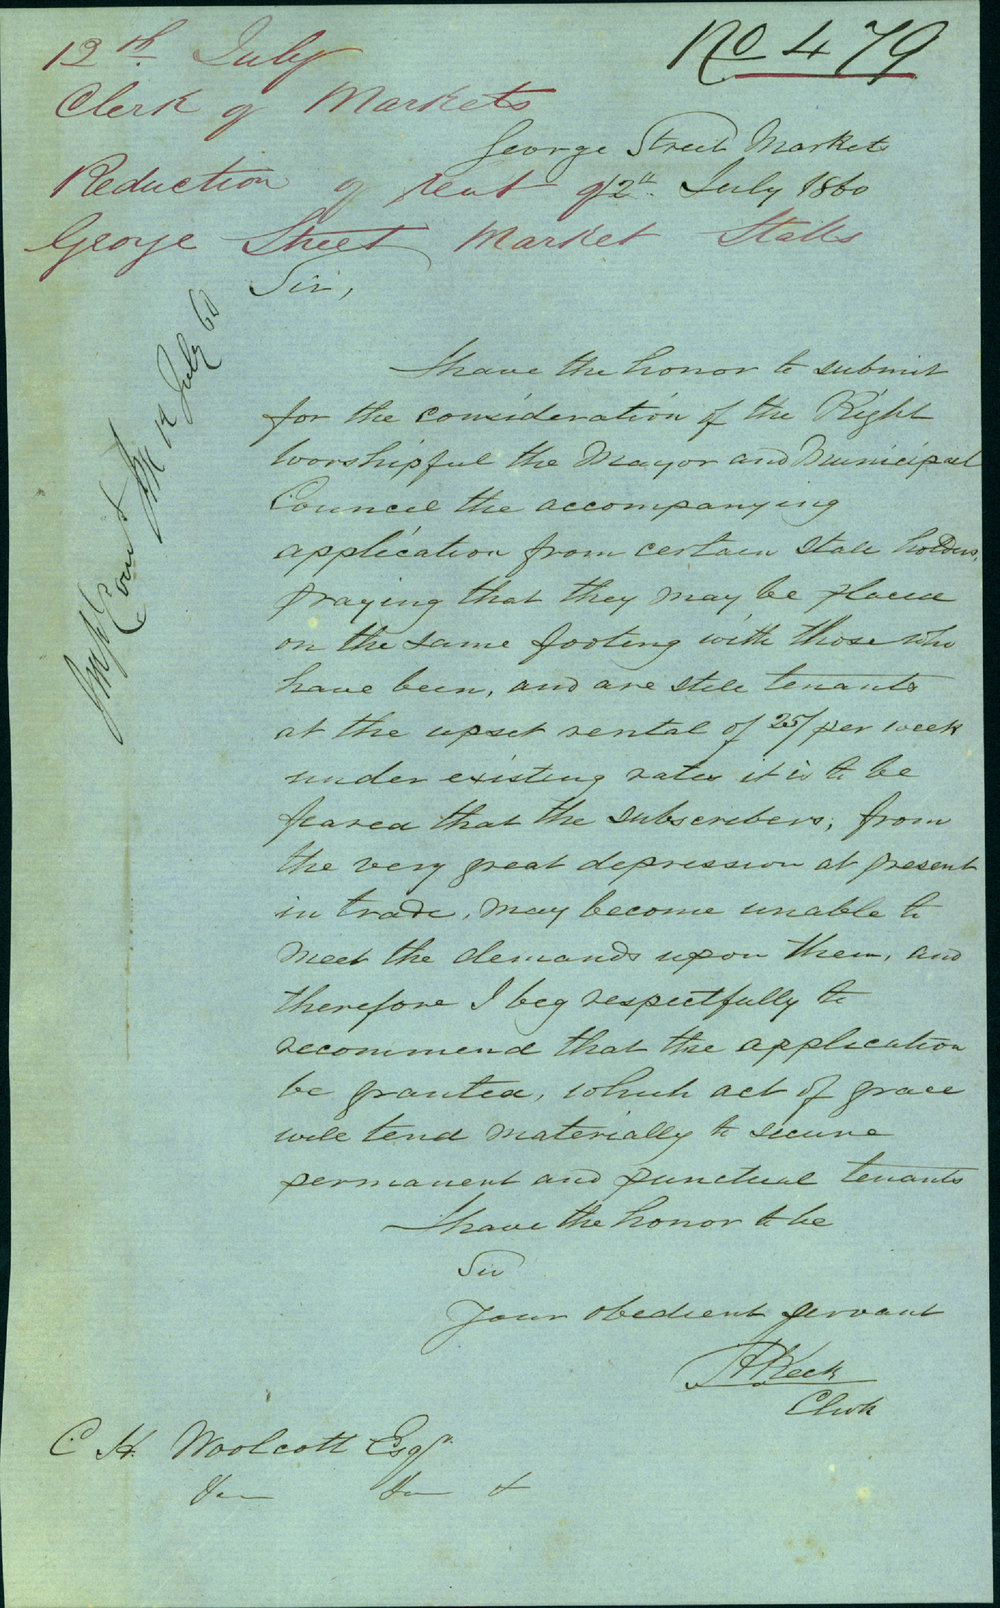 No 479
12th July
Clerk of Markets
Reduction of rent of
George Street Market Stalls
George Street Market
12th July 1860
Sir,
I have the honor to submit
for the consideration of the Right
Worshipful the Mayor and Municipal
Council the accompanying
application from certain Stall holders,
praying that they may be placed
on the same footing with those who
have been, and are still tenants
at the upset rental of 25/ per week
under existing rates it is to be
feared that the subscribers, from
the very great depression at present
in trade, may become unable to
meet the demands upon them, and
therefore I beg respectfully to
recommend that the application
be granted, which act of grace
will tend materially to secure
permanent and punctual tenants
I have the honor to be
Sir
Your obedient servant
Keck
Clerk
C H Woolcott Esqr
12 July 60